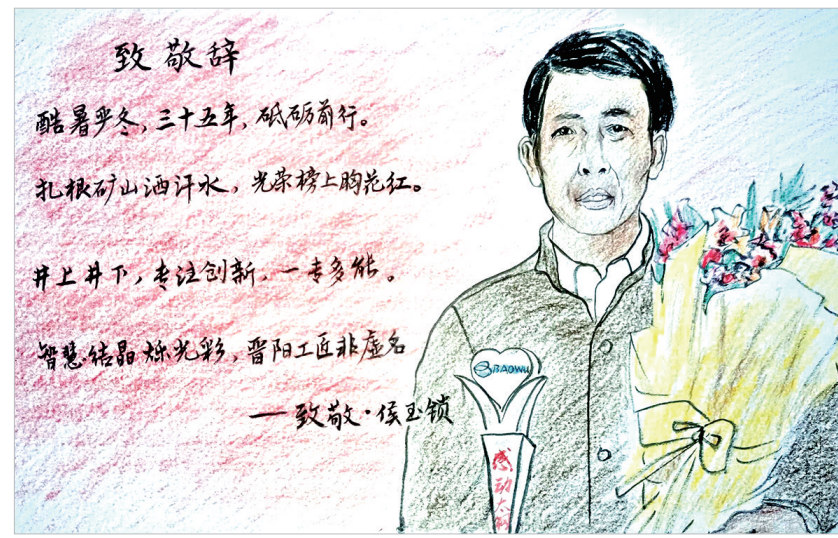 致敬辞
酷暑严冬，三十五年，砥砺前行。
扎根矿山洒汗水，光荣榜上胸花红。
井上井下，专注创新，一专多能。
智慧结晶烁光彩，晋阳工匠非虚名
——致敬·侯玉锁
BAOWU
感动太